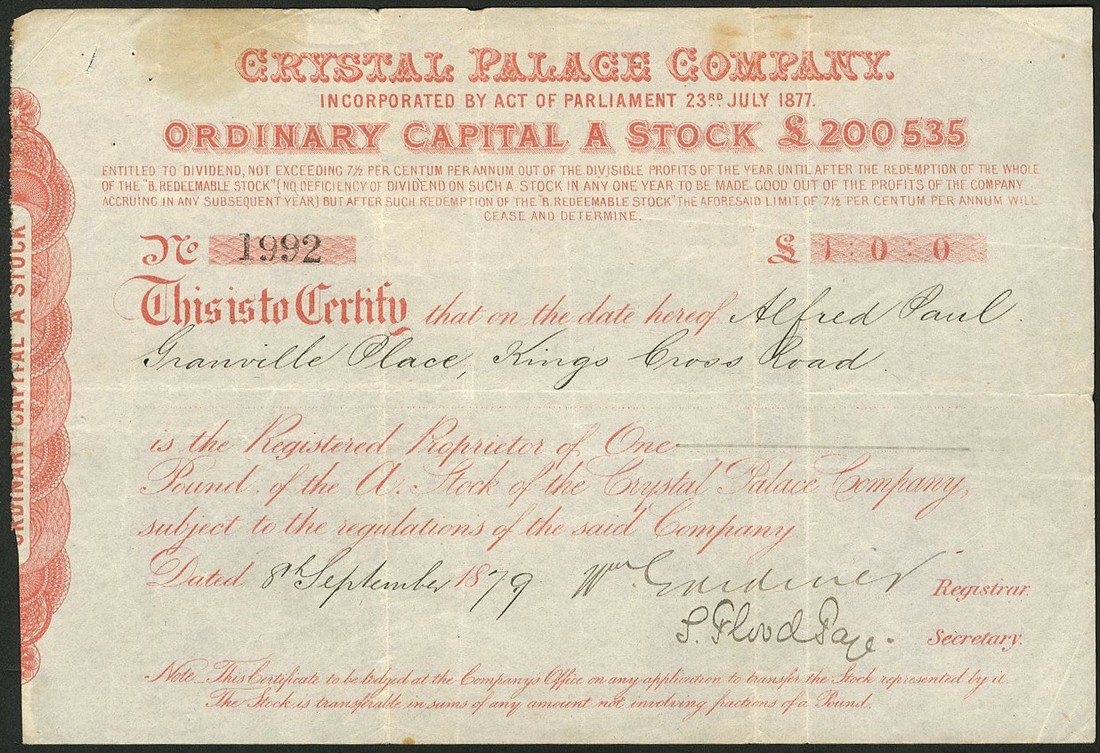 CRYSTAL PALACE COMPANY.
INCORPORATED BY ACT OF PARLIAMENT 23RD JULY 1877.
ORDINARY CAPITAL A STOCK £200535
ENTITLED TO DIVIDEND, NOT EXCEEDING 7½ PER CENTUM PER ANNUM OUT OF THE DIVISIBLE PROFITS OF THE YEAR UNTIL AFTER THE REDEMPTION OF THE WHOLE
OF THE "B. REDEEMABLE STOCK" (NO, DEFICIENCY OF DIVIDEND ON SUCH A STOCK IN ANY ONE YEAR TO BE MADE GOOD OUT OF THE PROFITS OF THE COMPANY
ACCRUING IN ANY SUBSEQUENT YEAR) BUT AFTER SUCH REDEMPTION OF THE "B. REDEEMABLE STOCK" THE AFORESAID LIMIT OF 7½ PER CENTUM PER ANNUM WILL
CEASE AND DETERMINE.
No 1992 £ 1:0:0
This is to Certify that on the date hereof Alfred Paul.
Granville Place, Kings Cross Road.
is the Registered Proprietor of One
Pound. of the A. Stock of the Crystal Palace Company,
subject to the regulations of the said Company.
Dated 8th September 1879 Wm Gardiner Registrar.
S. Flood Page. Secretary.
Note _ This Certificate to be lodged at the Company's Office on any application to transfer the Stock represented by it.
The Stock is transferable in sums of any amount not involving fractions of a Pound.
ORDINARY CAPITAL A STOCK